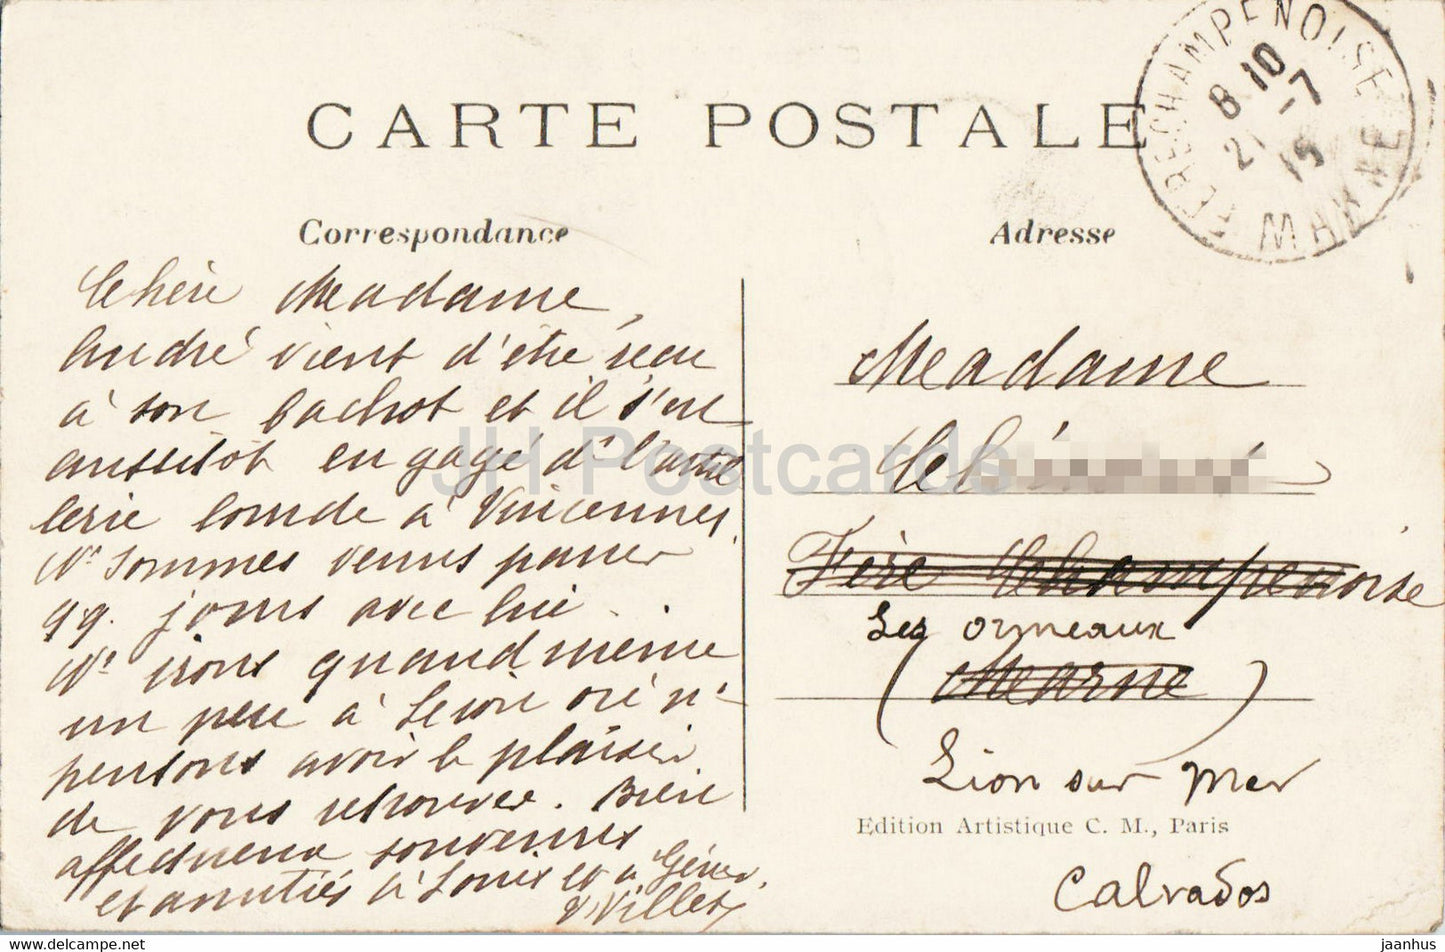 CARTE POSTALE
FERE-CHAMPENOISE
8 10
21 -7
15
MARNE
Correspondance
Adresse
Chère Madame,
André vient d'être reçu
à son bachot et il s'est
aussitôt engagé dś l'artil
lerie lourde à Vincennes.
Ns sommes venus passer
qq. jours avec lui.
Ns irons quand même
un peu à Lion où ns
pensons avoir le plaisir
de vous retrouver. Bien
affectueux souvenirs
et amitiés à Louis et à Genev.
Villet
Madame
Ch
Fère Champenoise
Les ormeaux
(Marne)
Lion sur mer
Edition Artistique C. M., Paris
Calvados
JH Postcards
www.delcampe.net
jaanhus